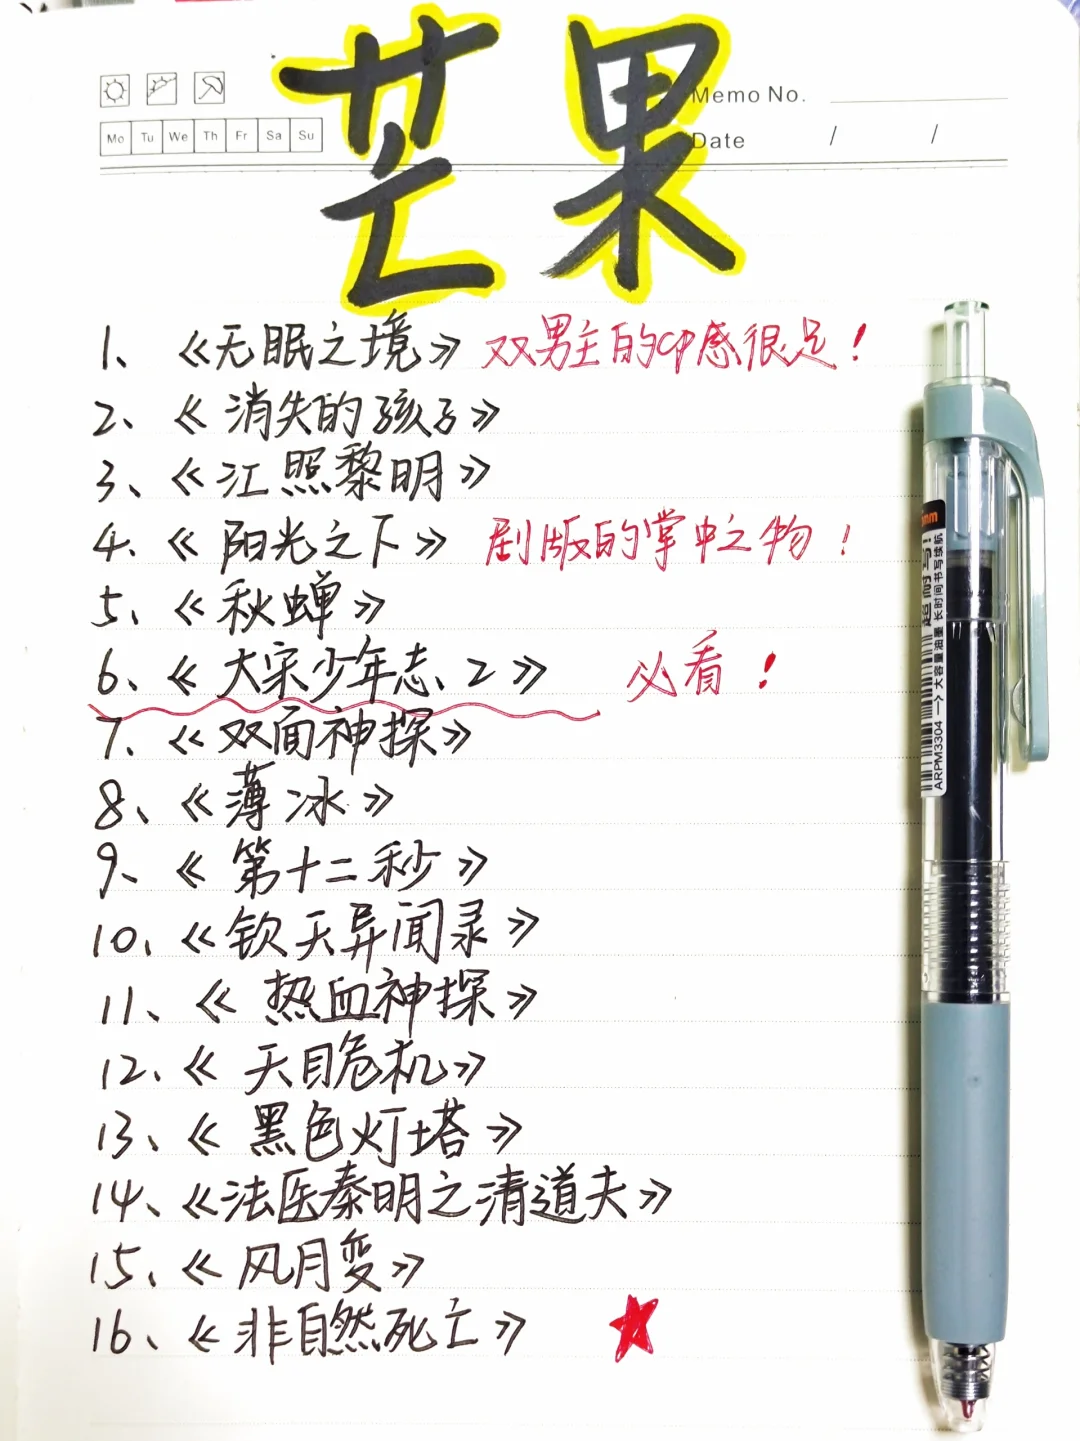 芒果
Memo No.
Mo Tu We Th Fr Sa Su
Date / /
1、《无眠之境》双男主的cp感很足！
2、《消失的孩子》
3、《江照黎明》
4、《阳光之下》剧版的掌中之物！
5、《秋蝉》
6、《大宋少年志2》 必看！
7、《双面神探》
8、《薄冰》
9、《第十二秒》
10、《钦天异闻录》
11、《热血神探》
12、《天目危机》
13、《黑色灯塔》
14、《法医秦明之清道夫》
15、《风月变》
16、《非自然死亡》
mm
超耐写!
大容量油墨 长时间书写续航
ARPM3304